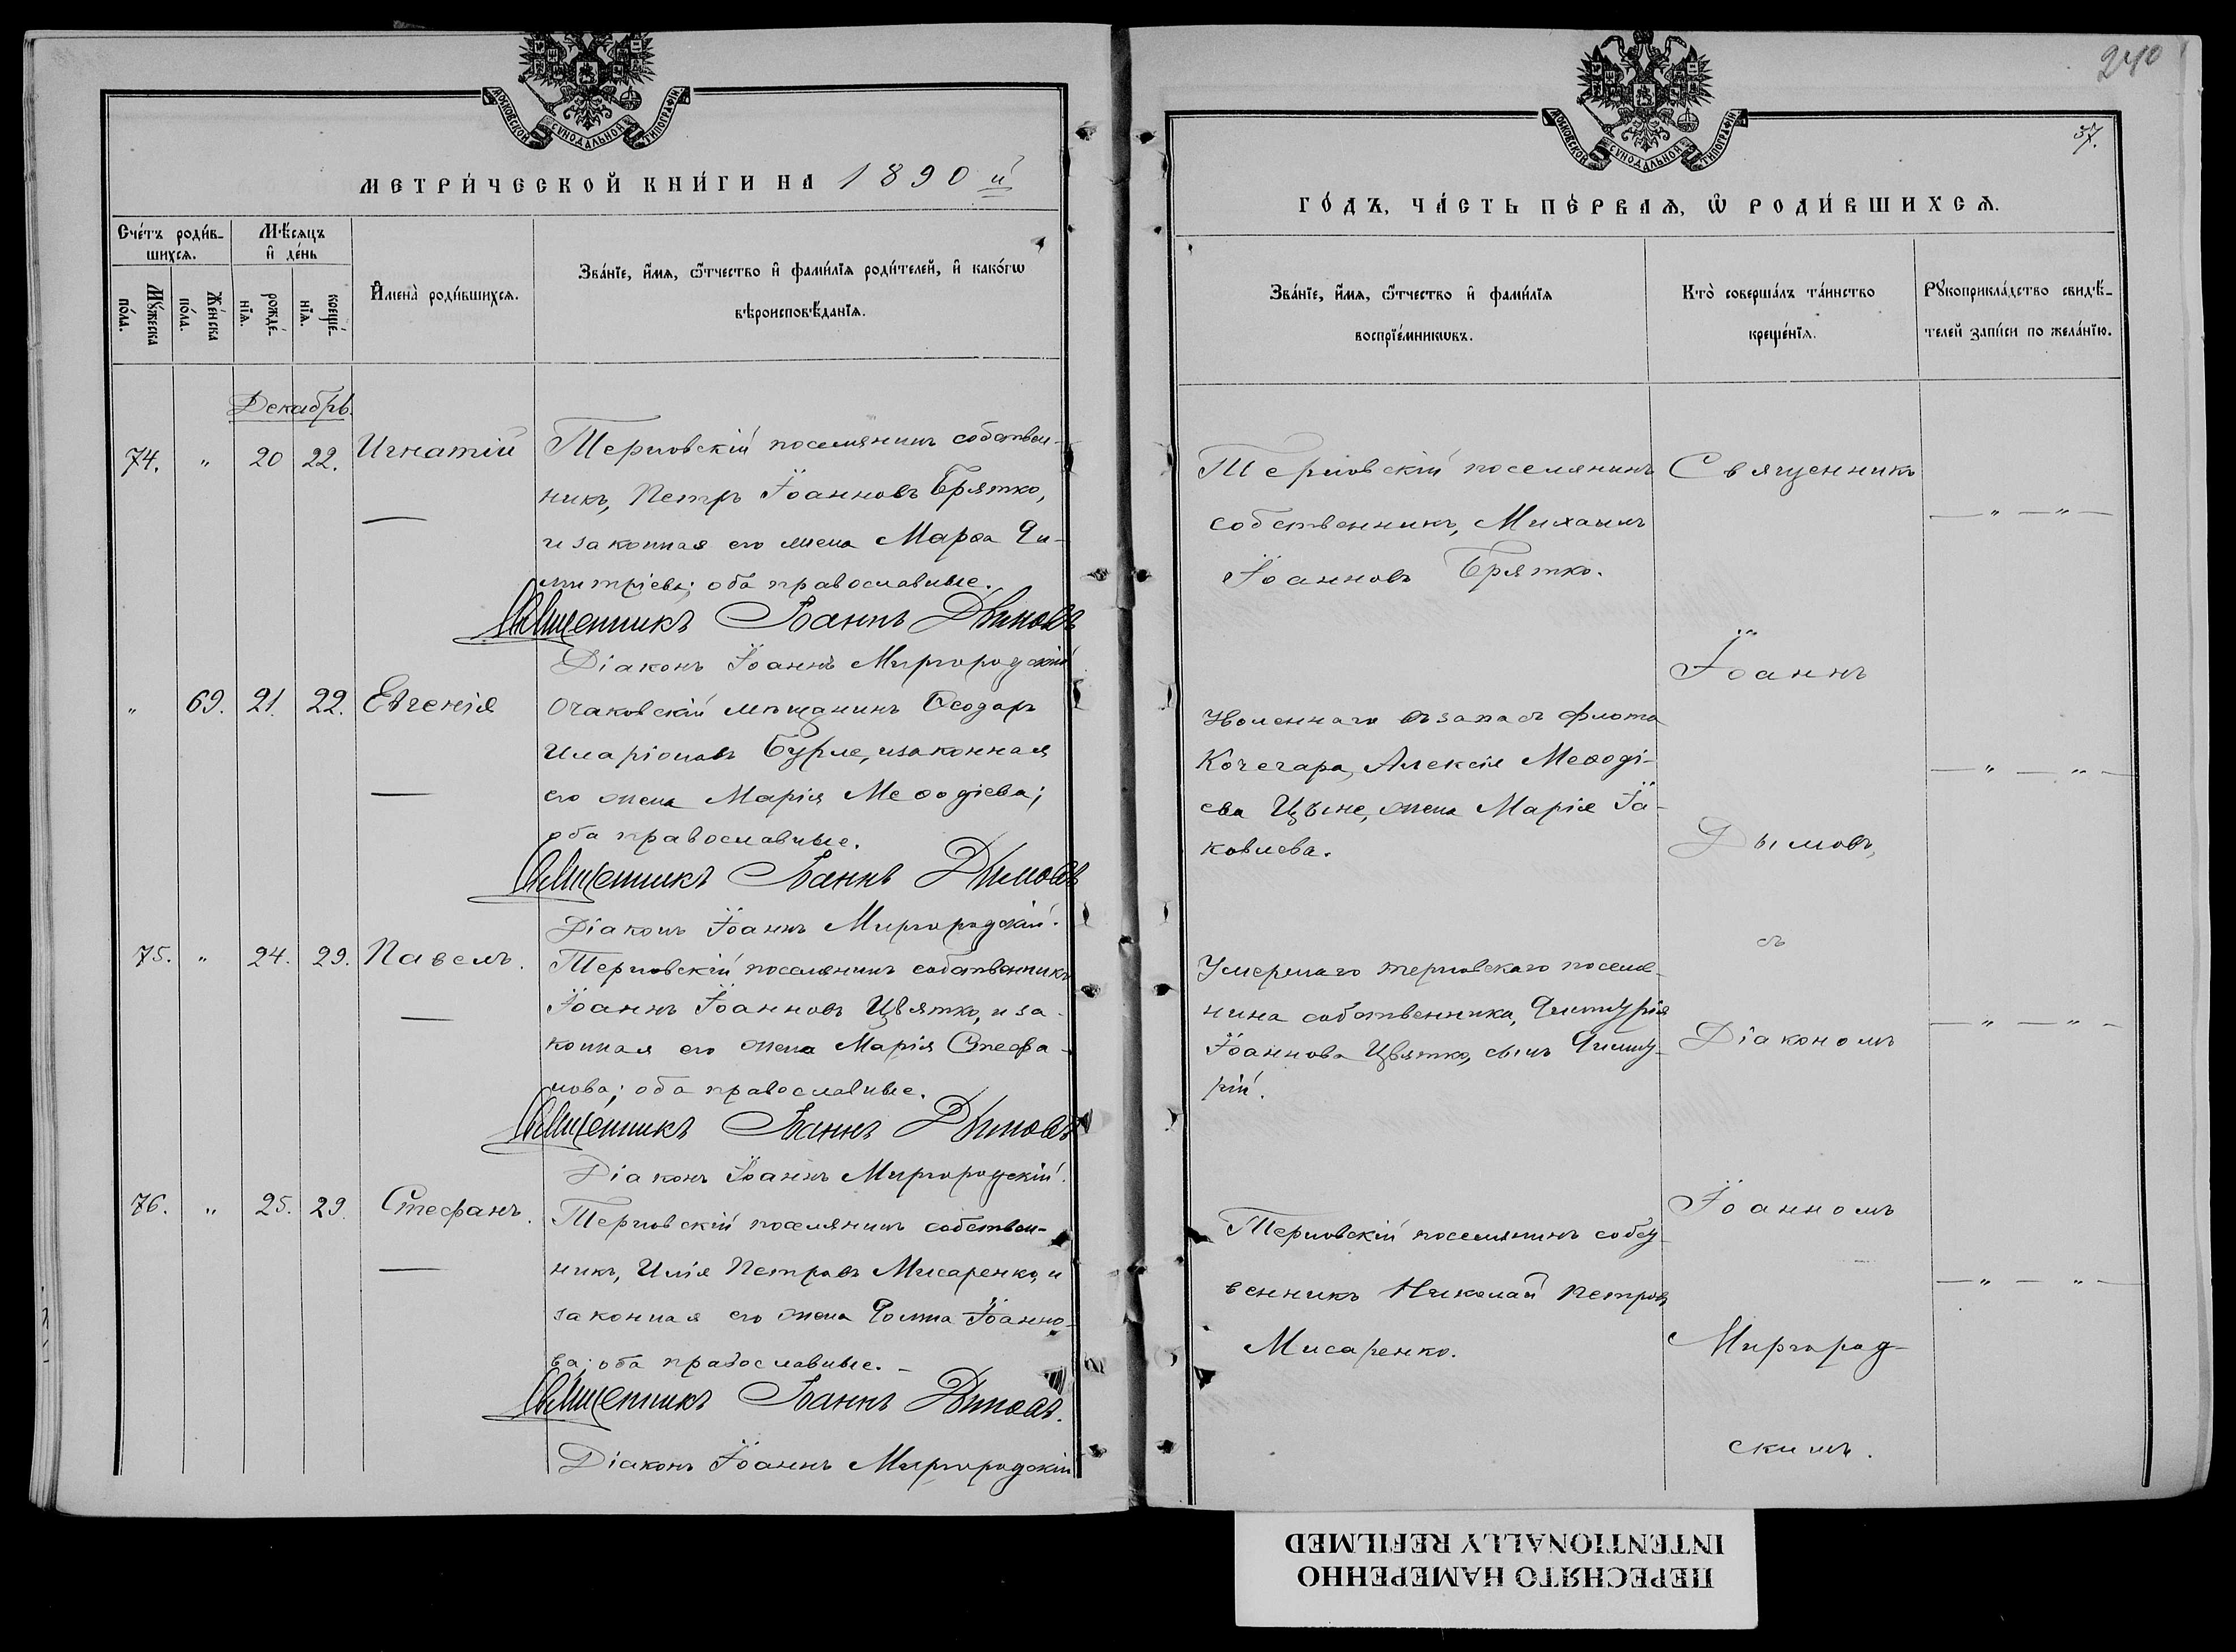 240
37.
МОСКОВСКОЙ СѴНОДАЛЬНОЙ ТИПОГРАФІИ
МОСКОВСКОЙ СѴНОДАЛЬНОЙ ТИПОГРАФІИ
МЕТРИ́ЧЕСКОЙ КНИ́ГИ НА 1890 й
ГО́ДЪ, ЧА́СТЬ ПЕ́РВАѦ, Ѡ҆ РОДИ́ВШИХСѦ.
Сче́тъ роди́в-
шихсѧ.
Мꙋ́жеска
по́ла.
Же́нска
по́ла.
Мѣ́сѧцъ
и҆ де́нь
рожде́-
нїѧ.
креще́-
нїѧ.
И҆мена̀ роди́вшихсѧ.
Зва́нїе, и҆́мѧ, ѻ҆́тчество и҆ фами́лїѧ роди́телей, и҆ како́гѡ
вѣроисповѣ́данїѧ.
Зва́нїе, и҆́мѧ, ѻ҆́тчество и҆ фами́лїѧ
воспрїе́мникѡвъ.
Кто̀ соверша́лъ та́инство
креще́нїѧ.
Рꙋкоприкла́дство свидѣ́-
телей за́писи по жела́нїю.
Декабрь.
74. " 20 22. Игнатій
Терновскій поселянинъ собствен-
никъ, Петръ Іоанновъ Брятко,
и законная его жена Марѳа Ди-
митріева; оба православные.
Священникъ Іоаннъ Дымовъ
Діаконъ Іоаннъ Миргородскій
Терновскій поселянинъ
собственникъ, Михаилъ
Іоанновъ Брятко.
" 69. 21. 22. Евгенія
Очаковскій мѣщанинъ Ѳеодоръ
Иларіоновъ Бурле, и законная
его жена Марія Меѳодіева;
оба православные.
Священникъ Іоаннъ Дымовъ
Діаконъ Іоаннъ Миргородскій.
Уволеннаго въ запасъ флота
Кочегара, Алексія Меѳоді-
ева Цѣне, жена Марія Іа-
ковлева.
75. " 24. 29. Павелъ.
Терновскій поселянинъ собственникъ
Іоаннъ Іоанновъ Цвятко, и за-
конная его жена Марія Стефа-
нова; оба православные.
Священникъ Іоаннъ Дымовъ
Діаконъ Іоаннъ Миргородскій.
Умершаго терновскаго поселя-
нина собственника, Димитрія
Іоаннова Цвятко, сынъ Димит-
рій.
76. " 25. 29. Стефанъ.
Терновскій поселянинъ собствен-
никъ, Илія Петровъ Мисаренко, и
законная его жена Іоанно-
ва; оба православные.
Священникъ Іоаннъ Дымовъ.
Діаконъ Іоаннъ Миргородскій
Терновскій поселянинъ собст-
венникъ Николай Петровъ
Мисаренко.
Священникъ
Іоаннъ
Дымовъ,
съ
Діакономъ
Іоанномъ
Миргород-
скимъ.
— " — " —
— " — " —
— " — " —
— " — " —
ПЕРЕСНЯТО НАМЕРЕННО
INTENTIONALLY REFILMED